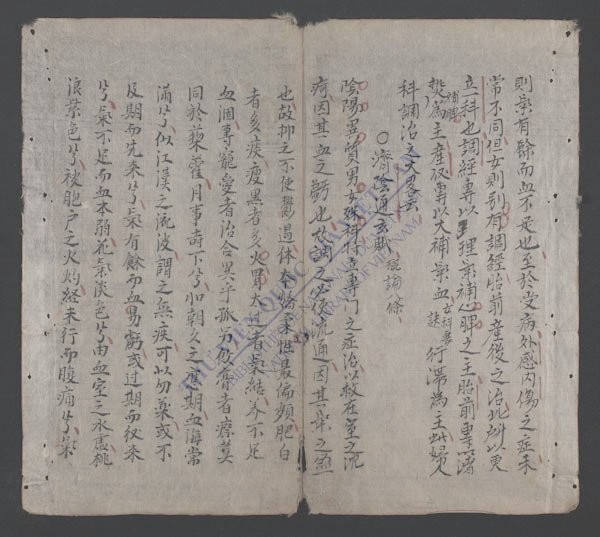 則氣有餘而血不足也至於受病外感內傷之症未
常不同但女則別有調經胎前產後之治此所以更
立科也調經專以理氣補心脾之主胎前專以清
補脾
熱為主產後專以大補氣血行滯為主此婦人
科調治之大畧矣
〇濟陰通玄賦
陰陽異質男女殊科特立專門之症治以救在室之沉
疴因其血之虧也故調之必使流通因其氣之盈
也故抑之不使鬱遏体本柔性最偏頗肥白
者多痰瘦黑者多火胃大過者氣結養不足
血涸專寵愛者治合異乎孤
同於藜藿月事時下兮如朝夕之應期血海常
滿兮似江漢之流波謂之無疾可以勿藥或不
及期而先來兮氣有餘而血易虧或過期而後來
兮氣不足而血本弱花氣淡色兮由血室之水盡桃
浪紫色兮被胞户之火灼経未行而腹痛兮氣
THƯ VIỆN QUỐC GIA VIỆT NAM
NATIONAL LIBRARY OF VIETNAM